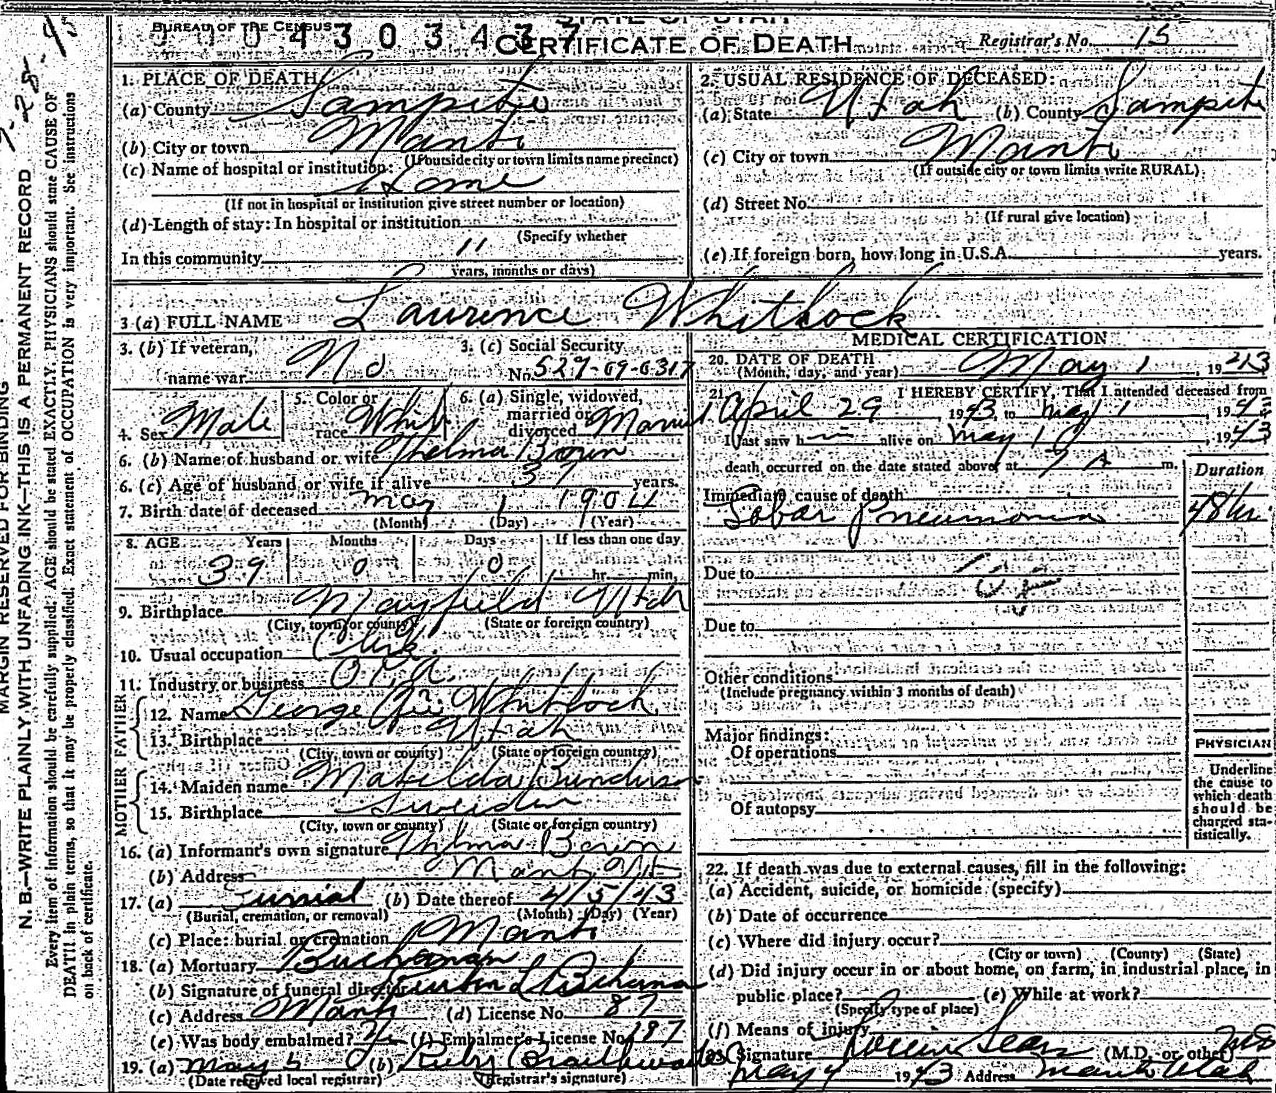 BUREAU OF THE CENSUS
0 0 0 4 3 0 3 4 3 7
STATE OF UTAH
CERTIFICATE OF DEATH
Registrar's No. 15
1. PLACE OF DEATH
(a) County Sanpete
(b) City or town Manti
(If outside city or town limits name precinct)
(c) Name of hospital or institution:
Home
(If not in hospital or institution give street number or location)
(d) Length of stay: In hospital or institution
(Specify whether
In this community 11
years, months or days)
2. USUAL RESIDENCE OF DECEASED:
(a) State Utah (b) County Sanpete
(c) City or town Manti
(If outside city or town limits write RURAL)
(d) Street No.
(If rural give location)
(e) If foreign born, how long in U.S.A. years.
3 (a) FULL NAME Laurence Whitlock
3. (b) If veteran, name war No
3. (c) Social Security No. 527-09-0317
4. Sex Male
5. Color or race White
6. (a) Single, widowed, married or divorced Married
6. (b) Name of husband or wife Thelma
6. (c) Age of husband or wife if alive 37 years.
7. Birth date of deceased May 1 1904
(Month) (Day) (Year)
8. AGE Years Months Days If less than one day
39 0 0 hr. min.
9. Birthplace Mayfield Utah
(City, town or county) (State or foreign country)
10. Usual occupation Clerk
11. Industry or business
FATHER
12. Name George Whitlock
13. Birthplace Utah
(City, town or county) (State or foreign country)
MOTHER
14. Maiden name Matilda
15. Birthplace Sweden
(City, town or county) (State or foreign country)
16. (a) Informant's own signature
(b) Address Manti Ut
17. (a) Burial (b) Date thereof 4/5/43
(Burial, cremation, or removal) (Month) (Day) (Year)
(c) Place: burial or cremation Manti
18. (a) Mortuary Buchanan
(b) Signature of funeral director
(c) Address Manti (d) License No. 87
(e) Was body embalmed? (f) Embalmer's License No. 197
19. (a) May 5 (b) Ruby Braithwaite
(Date received local registrar) (Registrar's signature)
MEDICAL CERTIFICATION
20. DATE OF DEATH
(Month, day, and year) May 1, 1943
21. I HEREBY CERTIFY, That I attended deceased from
April 29, 1943 to May 1, 1943
I last saw h alive on May 1, 1943
death occurred on the date stated above at 7 A m.
Duration
Immediate cause of death
Lobar Pneumonia 48 hr.
Due to
Due to
Other conditions
(Include pregnancy within 3 months of death)
Major findings:
Of operations
Of autopsy
PHYSICIAN
Underline the cause to which death should be charged statistically.
22. If death was due to external causes, fill in the following:
(a) Accident, suicide, or homicide (specify)
(b) Date of occurrence
(c) Where did injury occur?
(City or town) (County) (State)
(d) Did injury occur in or about home, on farm, in industrial place, in
public place? (e) While at work?
(Specify type of place)
(f) Means of injury
23. Signature Sears (M.D. or other) MD
May 4 1943 Address Manti Utah
MARGIN RESERVED FOR BINDING
N. B.—WRITE PLAINLY WITH UNFADING INK—THIS IS A PERMANENT RECORD
Every item of information should be carefully supplied; AGE should be stated EXACTLY. PHYSICIANS should state CAUSE OF
DEATH in plain terms, so that it may be properly classified; Exact statement of OCCUPATION is very important. See instructions
on back of certificate.